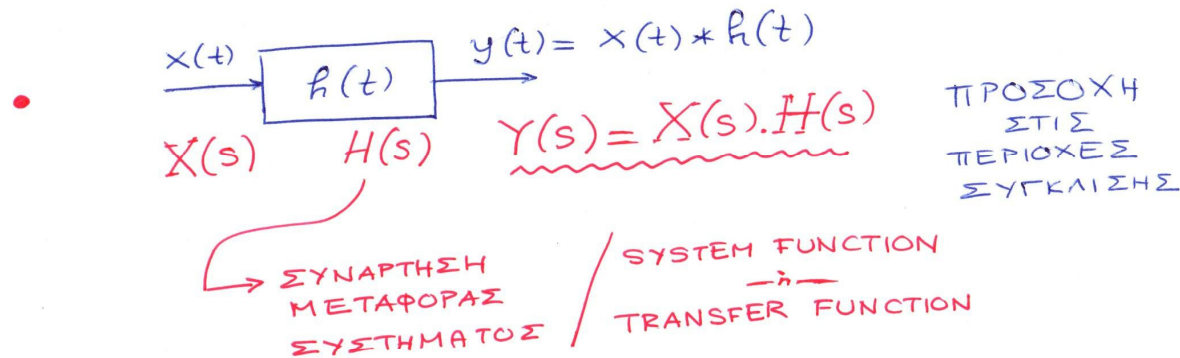 x(t)
h(t)
y(t) = x(t) * h(t)
X(s)
H(s)
Y(s) = X(s).H(s)
ΠΡΟΣΟΧΗ
ΣΤΙΣ
ΠΕΡΙΟΧΕΣ
ΣΥΓΚΛΙΣΗΣ
ΣΥΝΑΡΤΗΣΗ
ΜΕΤΑΦΟΡΑΣ
ΣΥΣΤΗΜΑΤΟΣ
/
SYSTEM FUNCTION
—ή—
TRANSFER FUNCTION